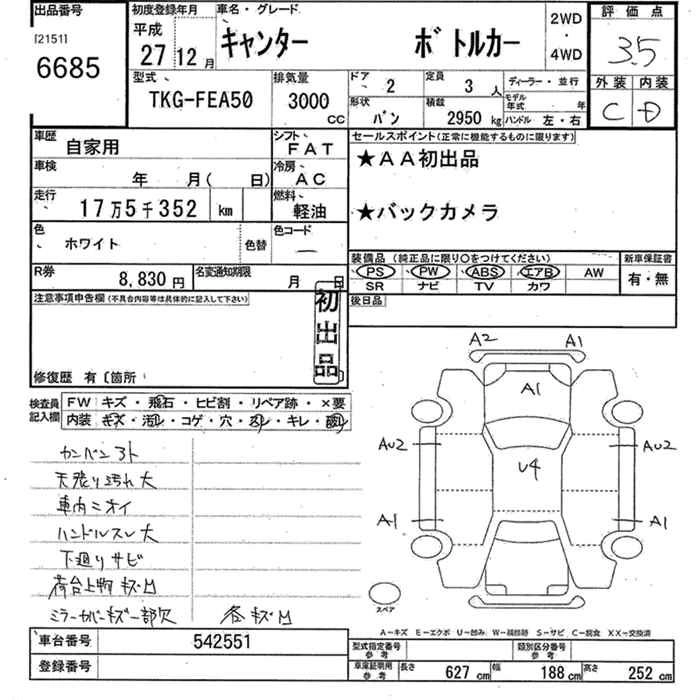 出品番号
[21511
6685
初度登録年月
平成
27 12月
車名・グレード
キャンター ボトルカー
2WD
・
4WD
評価点
3.5
外装 内装
C D
型式
TKG-FEA50
排気量
3000
CC
ドア
2
定員
3 人
形状
バン
積載
2950 kg
ディーラー・並行
モデル
年式
年
ハンドル 左・右
車歴
自家用
シフト
FAT
車検
年 月( 日)
冷房
AC
走行
17万5千352 km
燃料
軽油
色
ホワイト
色替
色コード
―
R券
8,830円
名変通知期限
月 日
セールスポイント(正常に機能するものに限ります)
★AA初出品
★バックカメラ
装備品(純正品に限り○をつけてください)
PS PW ABS エアB AW
SR ナビ TV カワ
新車保証書
有・無
後日品
注意事項申告欄(不具合内容等は具体的に記入して下さい)
初出品
修復歴 有〔箇所
検査員
記入欄
FW キズ・飛石・ヒビ割・リペア跡・×要
内装 キズ・汚レ・コゲ・穴・スレ・キレ・
カンバン3ト
天張り汚れ大
車内ニオイ
ハンドルスレ大
下廻りサビ
荷台上物キズ凹
ミラーカバーキズ一部欠
各キズ凹
A2 A1
A1
AU2 AU2
U4
A1 A1
スペア
A―キズ E―エクボ U―凹み W―補修跡 S―サビ C―腐食 XX―交換済
車台番号 542551
登録番号
型式指定番号
参考
類別区分番号
参考
車庫証明用
参考
長さ 627 cm 幅 188 cm 高さ 252 cm